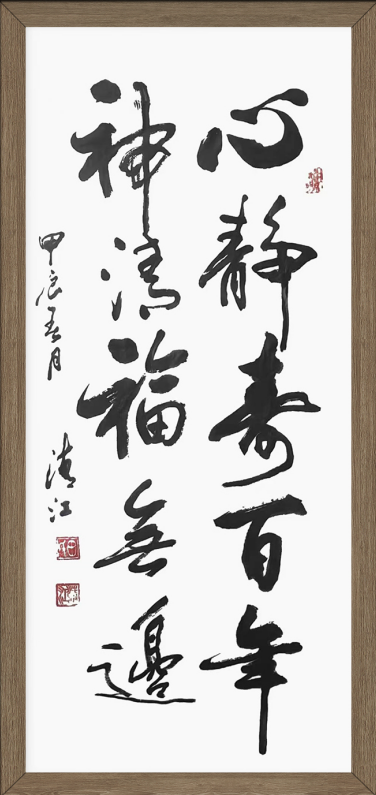 心静寿百年
神清福無邊
甲辰春月
清江